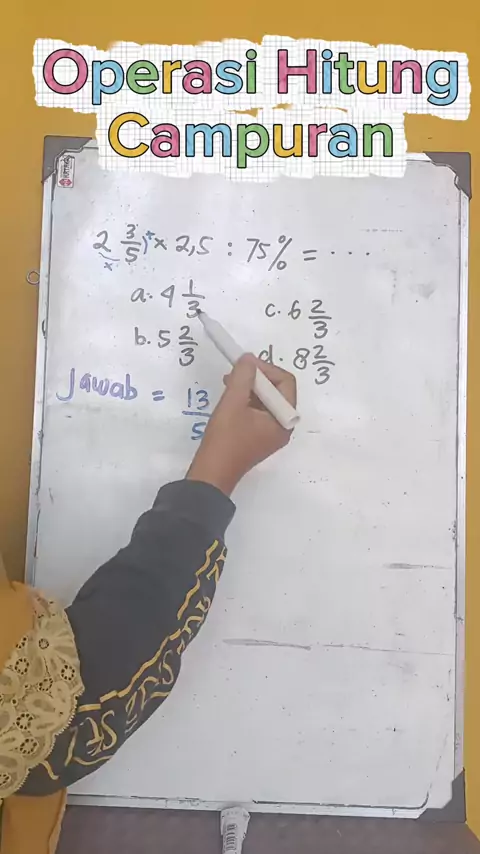 Operasi Hitung
Campuran
2 3/5 × 2,5 : 75% = ...
a. 4 1/3
c. 6 2/3
b. 5 2/3
d. 8 2/3
Jawab = 13/5